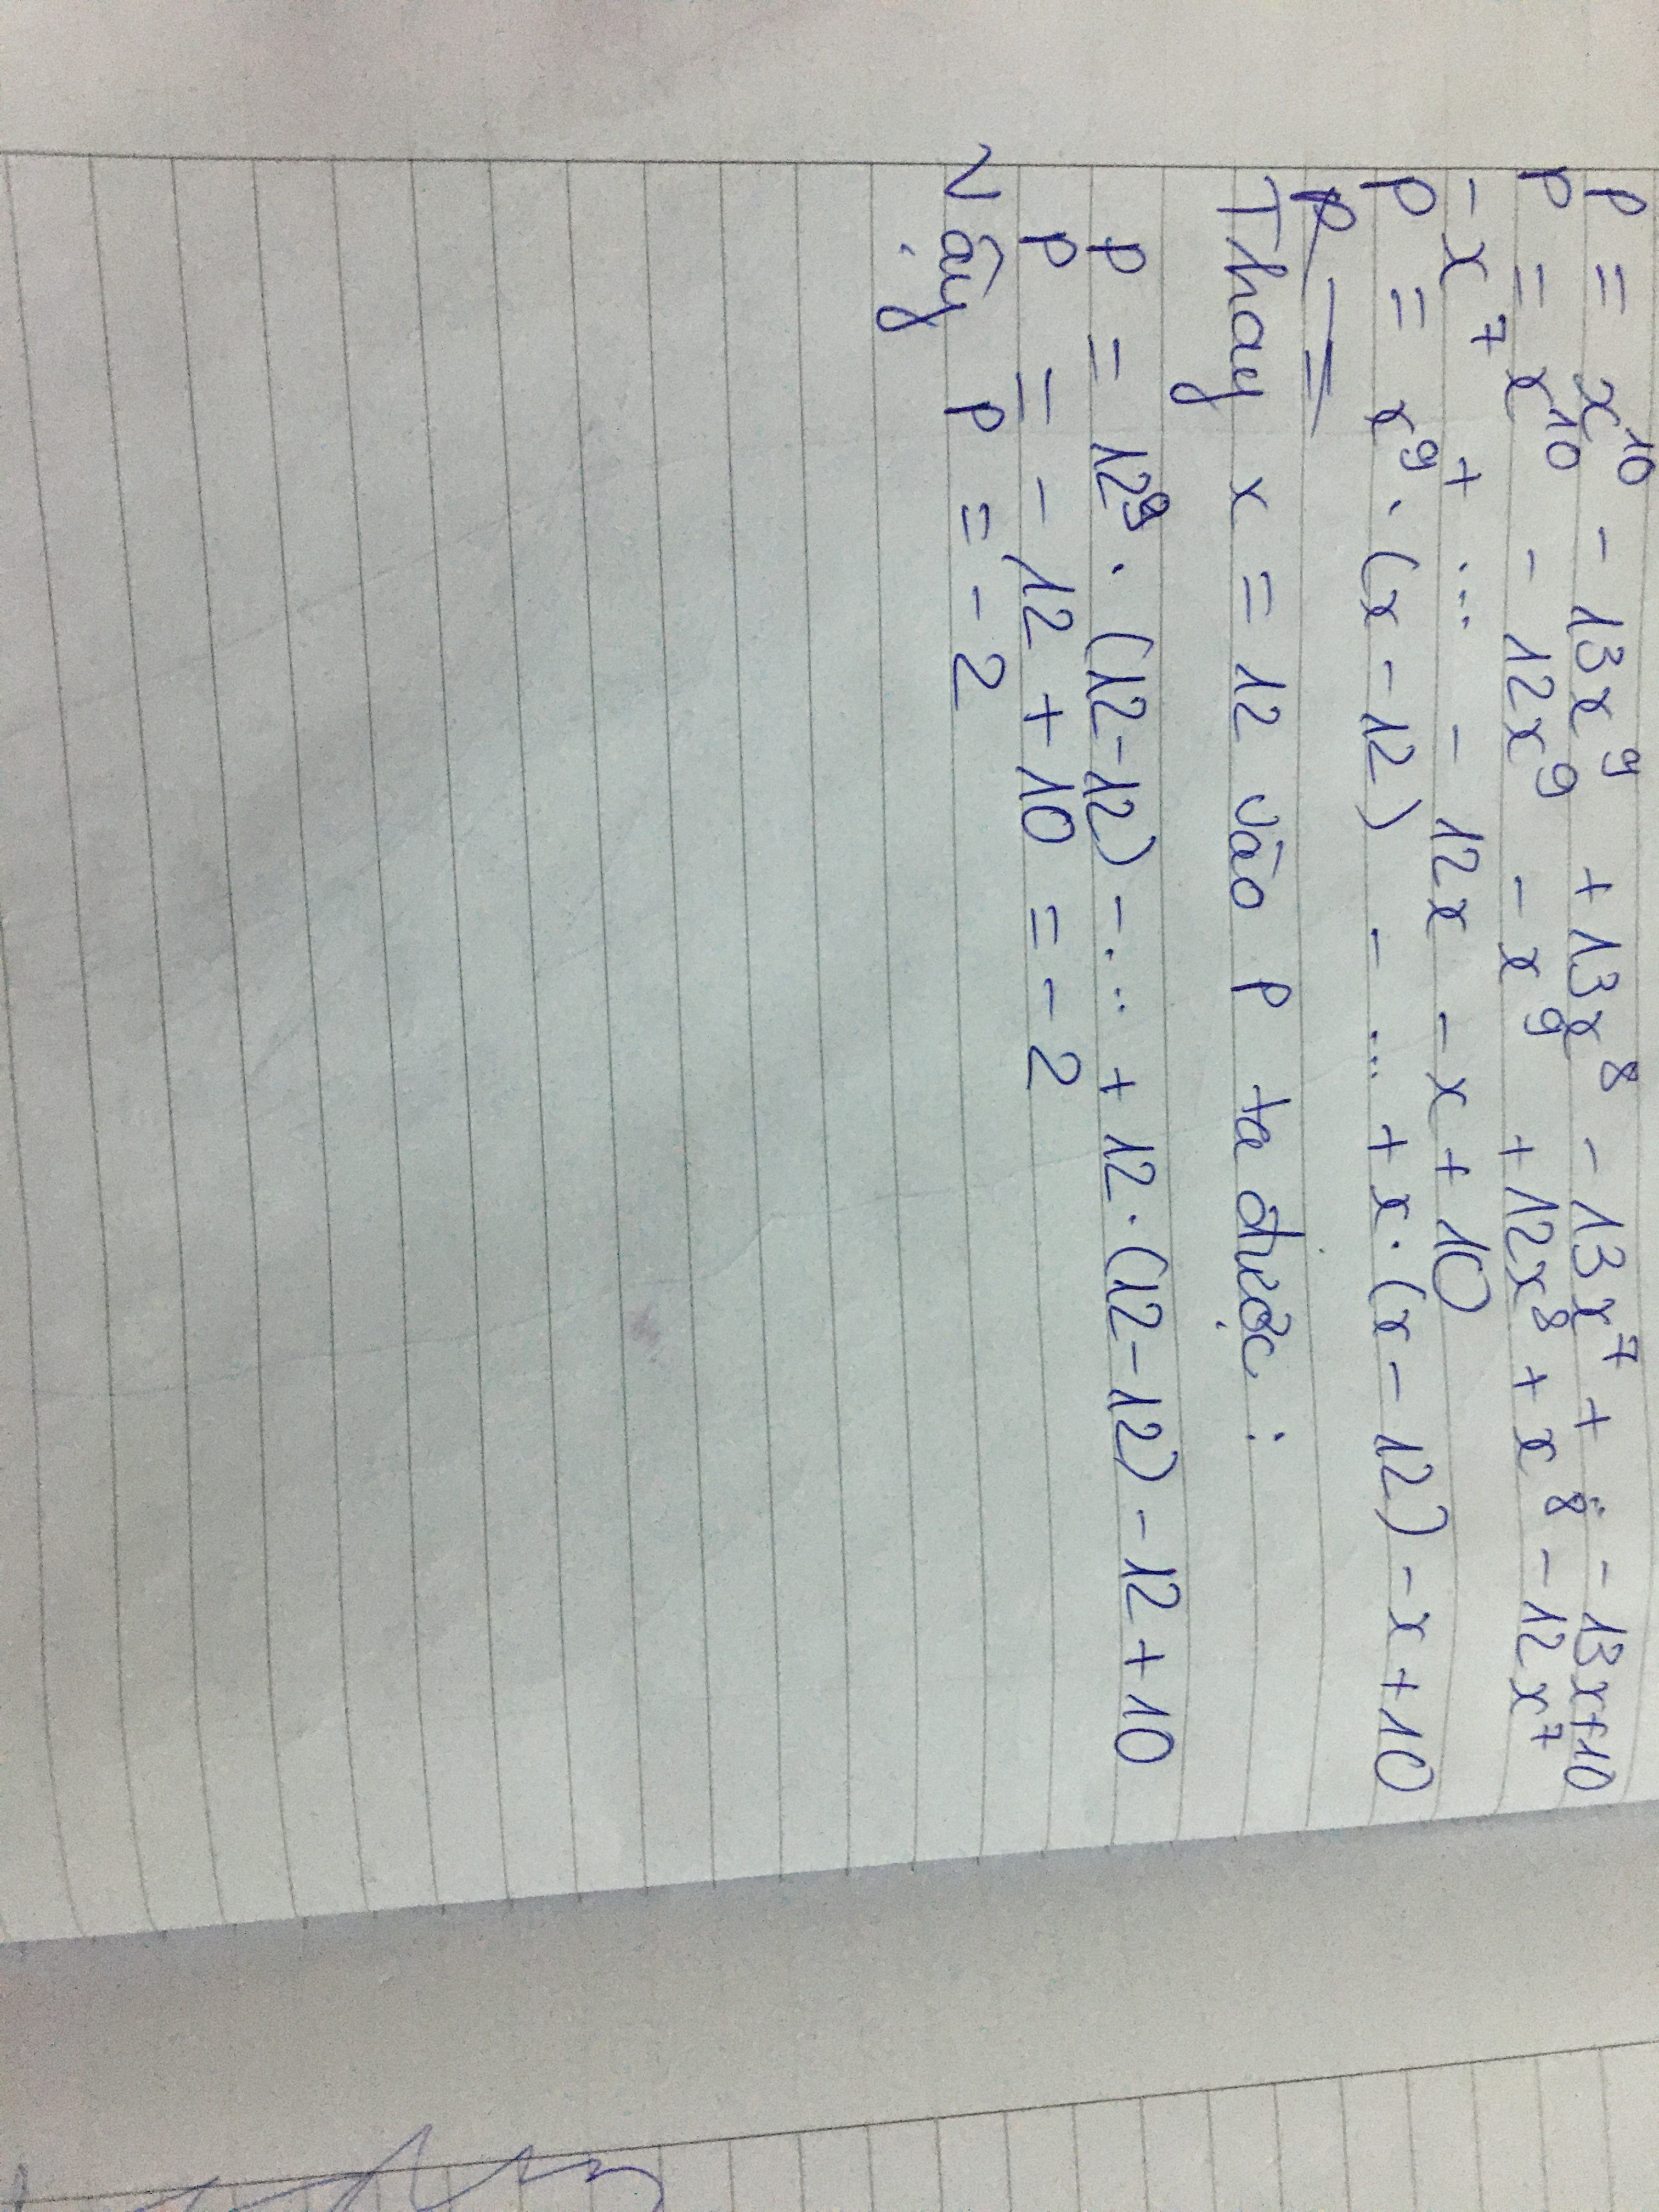 P = x¹⁰ - 13x⁹ + 13x⁸ - 13x⁷ + ... - 13x+10
P = x¹⁰ - 12x⁹ - x⁹ + 12x⁸ + x⁸ - 12x⁷
- x⁷ + ... - 12x - x + 10
P = x⁹ . (x - 12) - ... + x . (x - 12) - x + 10
P =
Thay x = 12 vào P ta được :
P = 12⁹ . (12-12) - ... + 12 . (12-12) - 12 + 10
P = - 12 + 10 = - 2
Vậy P = - 2